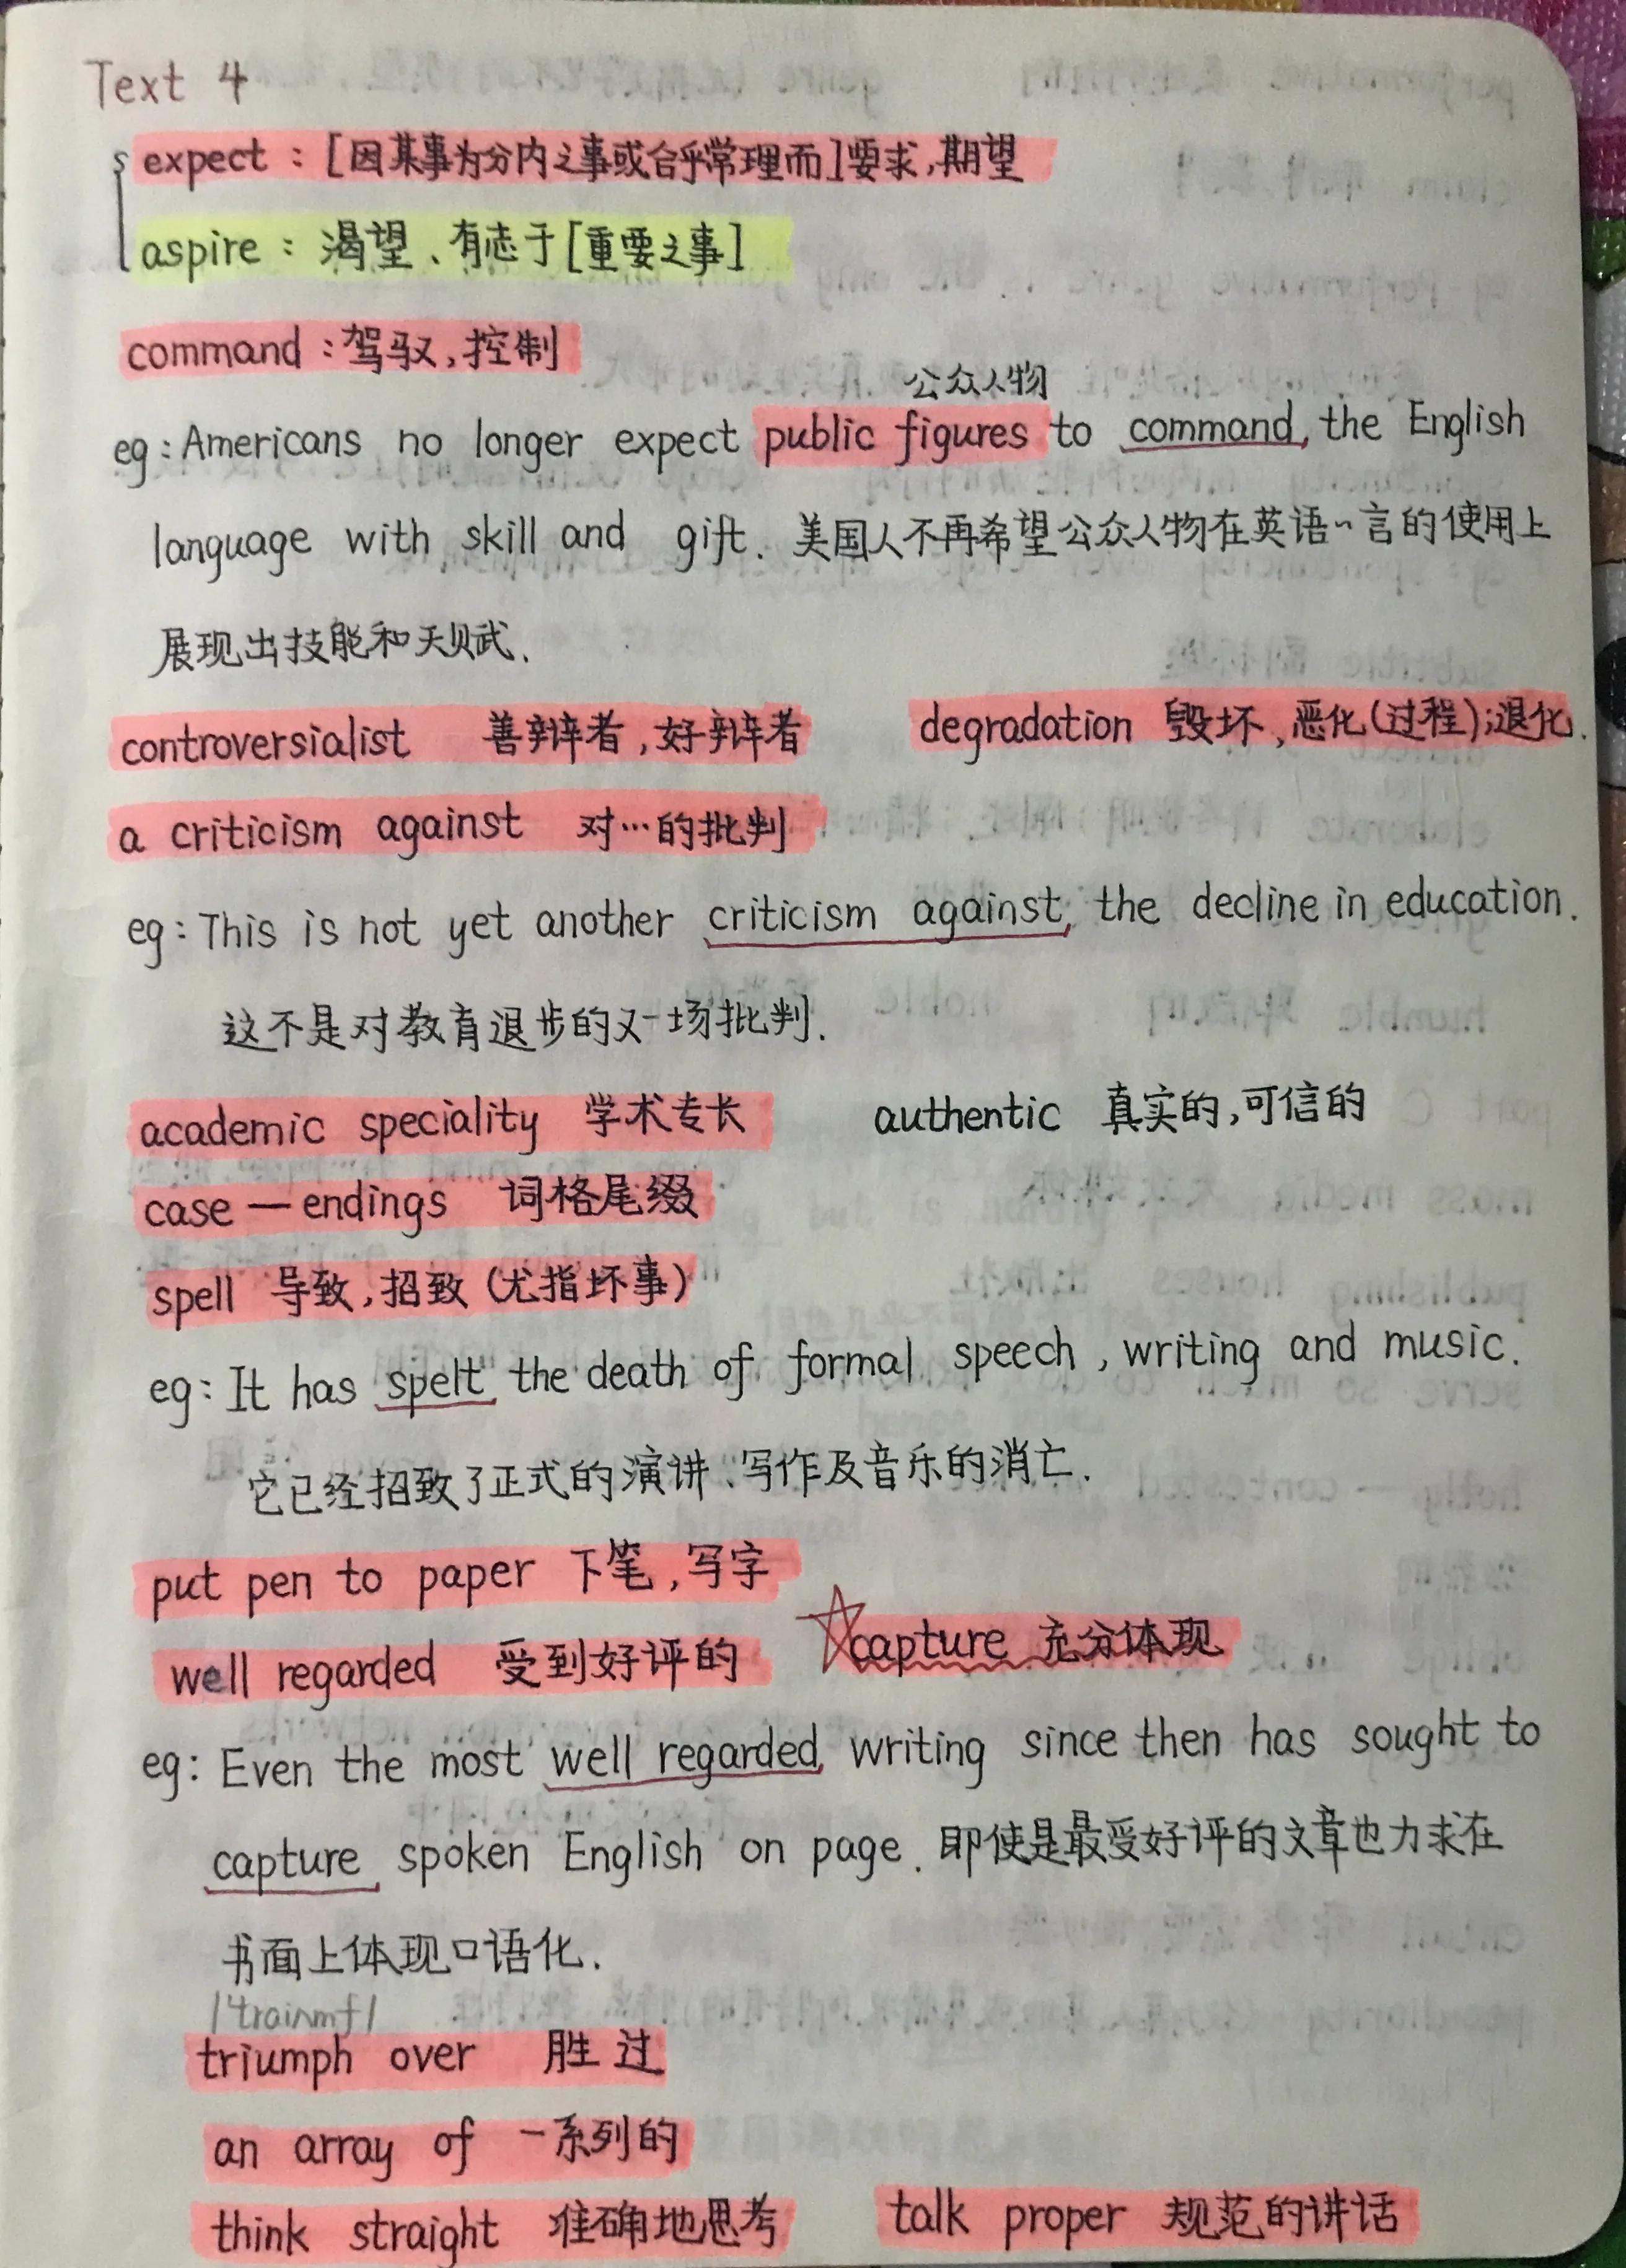 Text 4
s expect：[因某事为分内之事或合乎常理而]要求,期望
aspire：渴望、有志于[重要之事]
command：驾驭,控制
公众人物
eg：Americans no longer expect public figures to command the English
language with skill and gift. 美国人不再希望公众人物在英语~言的使用上
展现出技能和天赋.
controversialist 善辩者,好辩者 degradation 毁坏,恶化(过程);退化.
a criticism against 对…的批判
eg：This is not yet another criticism against the decline in education.
这不是对教育退步的又一场批判.
academic speciality 学术专长 authentic 真实的,可信的
case — endings 词格尾缀
spell 导致,招致(尤指坏事)
eg：It has spelt the death of formal speech, writing and music.
它已经招致了正式的演讲、写作及音乐的消亡.
put pen to paper 下笔,写字
well regarded 受到好评的 ☆capture 充分体现
eg：Even the most well regarded writing since then has sought to
capture spoken English on page. 即使是最受好评的文章也力求在
书面上体现口语化.
triumph over 胜过
an array of 一系列的
think straight 准确地思考 talk proper 规范的讲话